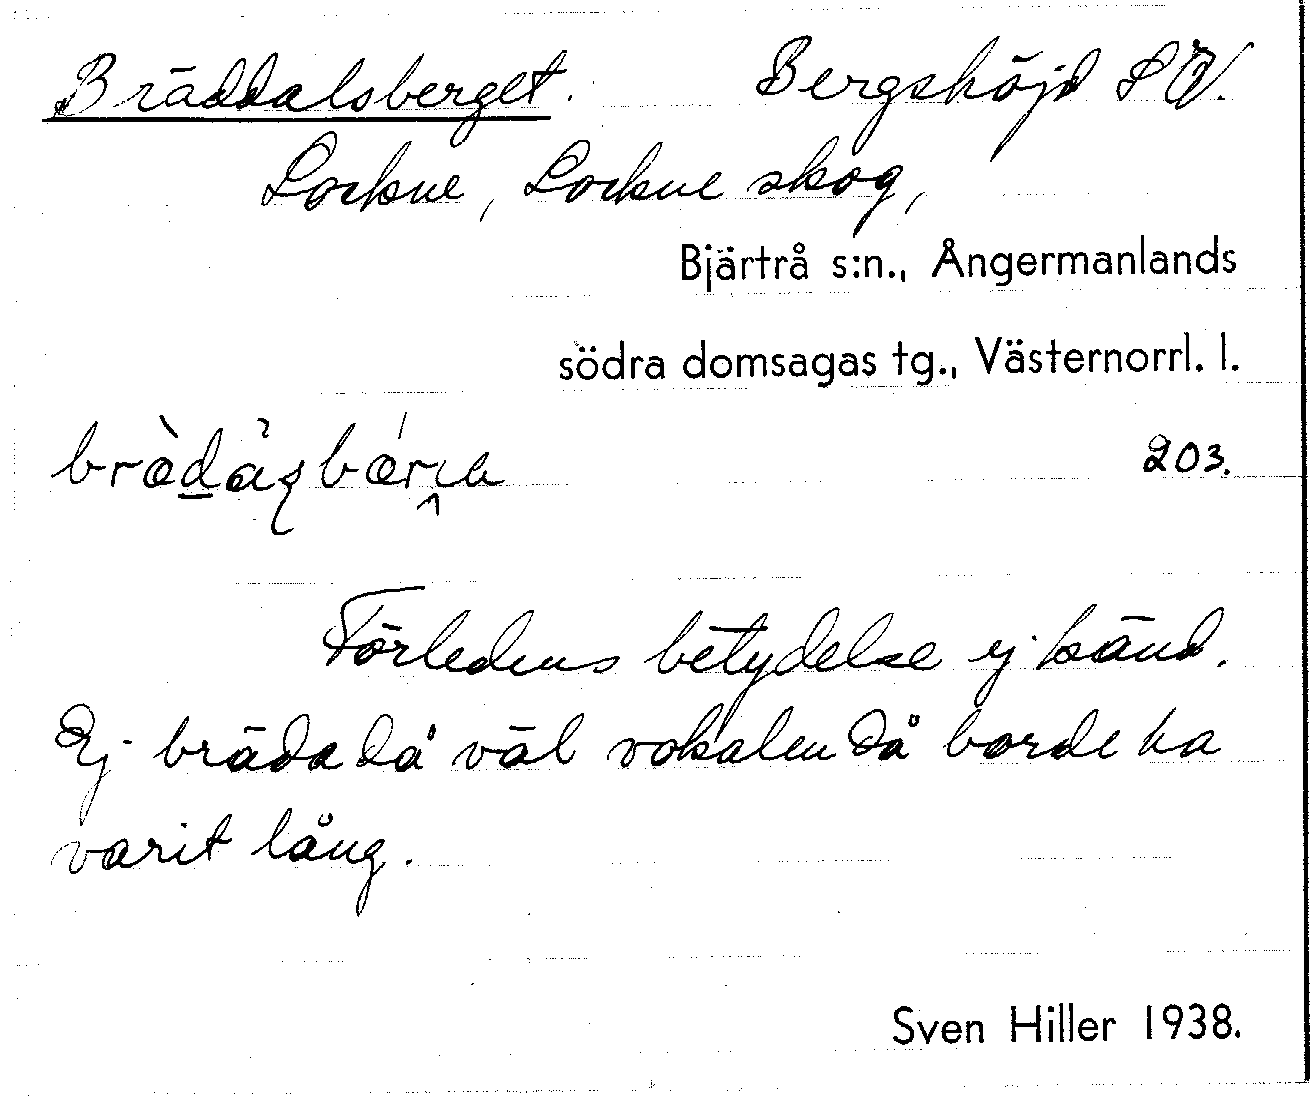 Bräddalsberget. Bergshöjd SV.
Lockne, Lockne skog,
Bjärtrå s:n., Ångermanlands
södra domsagas tg., Västernorrl. l.
203.
Förledens betydelse ej känd.
Ej bräda då väl vokalen då borde ha
varit lång.
Sven Hiller 1938.